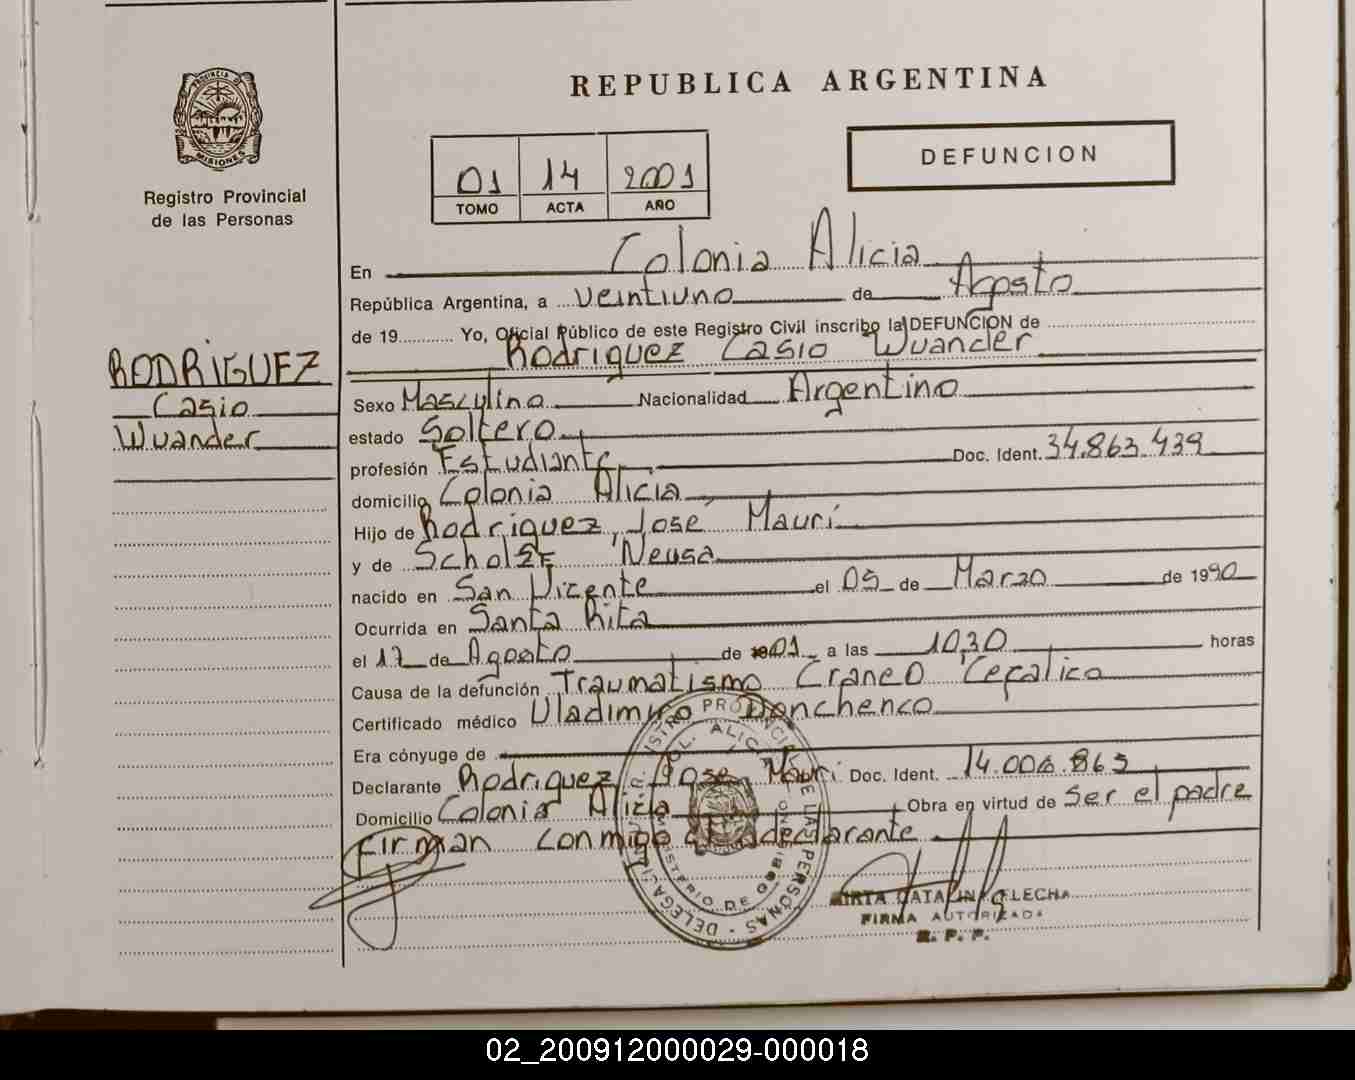 REPUBLICA ARGENTINA
PROVINCIA DE MISIONES
Registro Provincial
de las Personas
01 14 2001
TOMO ACTA AÑO
DEFUNCION
En Colonia Alicia
República Argentina, a veintiuno de Agosto
de 19 Yo, Oficial Público de este Registro Civil inscribo la DEFUNCION de
Rodriguez Casio Wuander
RODRIGUEZ
Casio
Wuander
Sexo Masculino Nacionalidad Argentino
estado Soltero
profesión Estudiante Doc. Ident. 34.863.439
domicilio Colonia Alicia
Hijo de Rodriguez, José Mauri
y de Neusa
nacido en San Vicente el 05 de Marzo de 1990
Ocurrida en Santa Rita
el 17 de Agosto de 01 a las 10,30 horas
Causa de la defunción Traumatismo Craneo Cefalico
Certificado médico Vladimiro Donchenco
Era cónyuge de
Declarante Rodriguez Jose Mauri Doc. Ident. 14.006.865
Domicilio Colonia Alicia Obra en virtud de Ser el padre
Firman conmigo el declarante
CATALINA FLECHA
FIRMA AUTORIZADA
R. P. P.
02_200912000029-000018